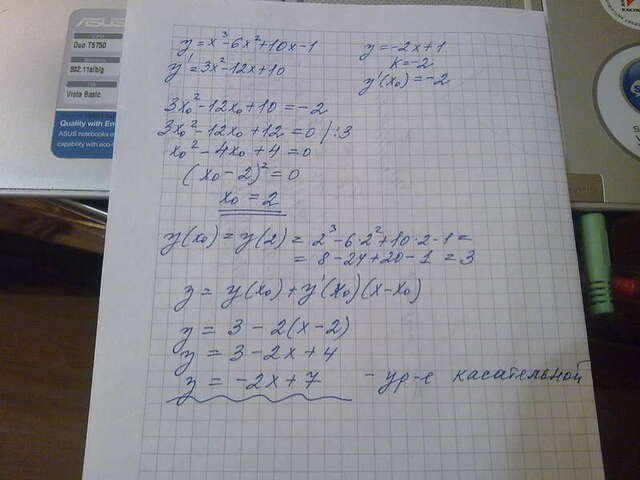 ASUS
Duo T5750
802.11a/b/g
Vista Basic
Quality with
ASUS notebooks
capability with eco-
y=x³-6x²+10x-1
y'=3x²-12x+10
y=-2x+1
k=-2
y'(x₀)=-2
3x₀²-12x₀+10=-2
3x₀²-12x₀+12=0 /:3
x₀²-4x₀+4=0
(x₀-2)²=0
x₀=2
y(x₀)=y(2)=2³-6·2²+10·2-1=
=8-24+20-1=3
y=y(x₀)+y'(x₀)(x-x₀)
y=3-2(x-2)
y=3-2x+4
y=-2x+7 - ур-е касательной